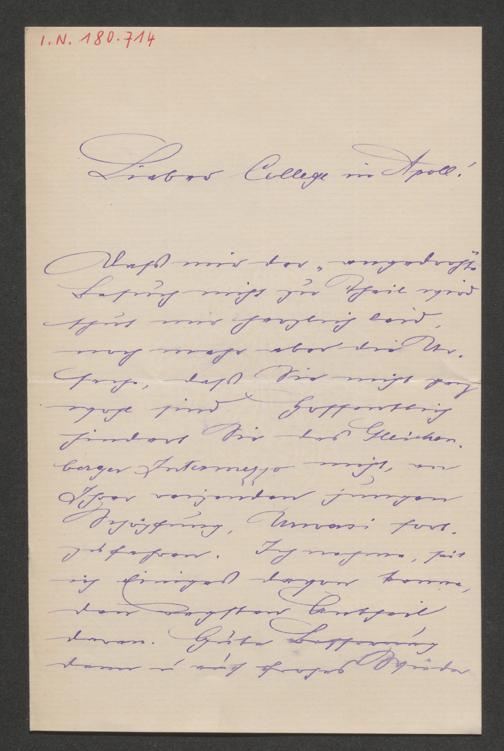 I.N. 180.714
Lieber College in Apoll!
Daß mir der „angedrohte“
Besuch nicht zu Theil wird
thut mir herzlich leid,
noch mehr aber die Ur-
sache, daß Sie nicht ganz
wohl sind. Hoffentlich
hindert Sie das Gleichen-
berger Intermezzo nicht, an
Ihrer reizenden jungen
Schöpfung, Urvasi fort-
zufahren. Ich nehme, seit
ich Einiges davon kenne,
den regsten Antheil
daran. Gute Besserung
denn u. auf frohes Wieder